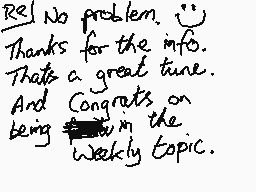 Re/ No problem.
Thanks for the info.
Thats a great tune.
And Congrats on
being in the
Weekly topic.